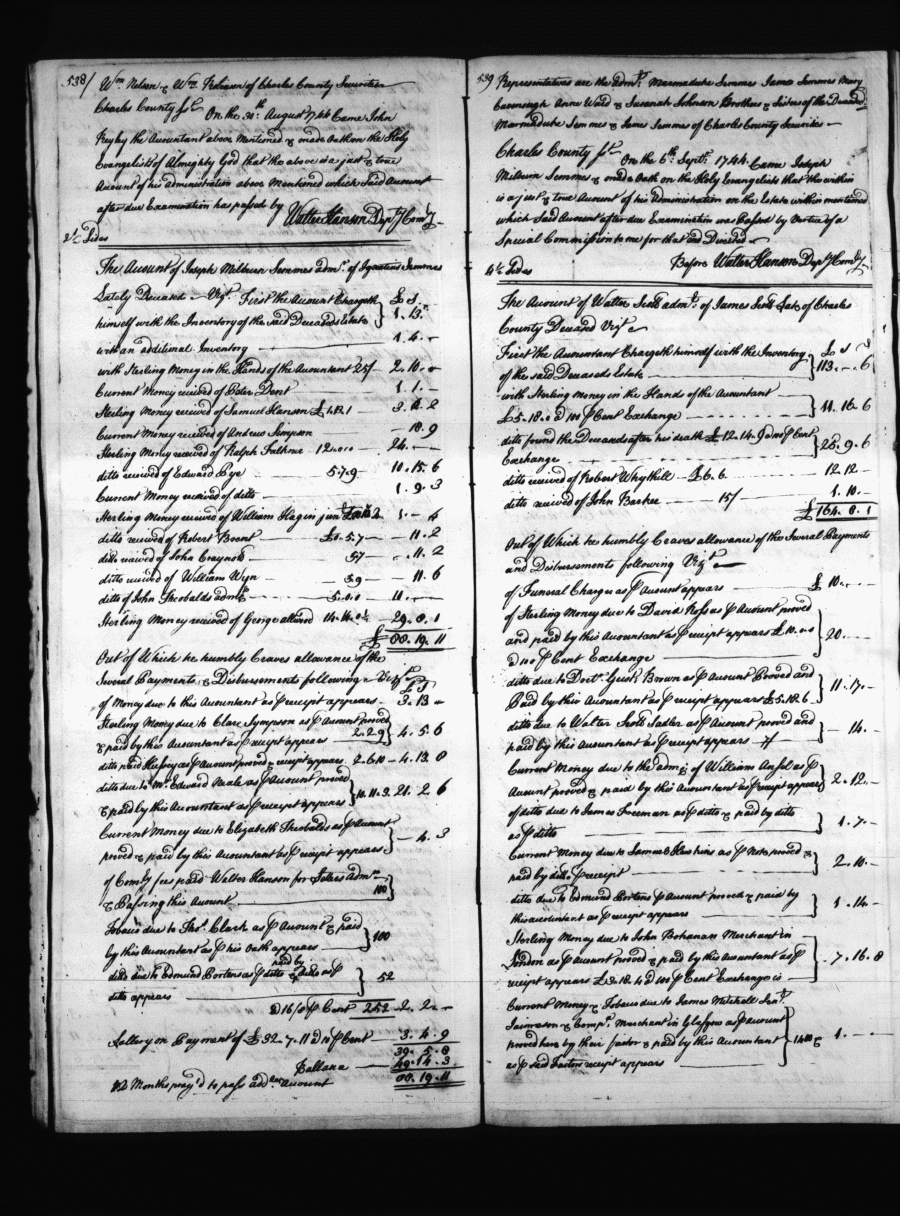 538/ Wm Nelson & Wm Robinson of Charles County Securities
Charles County Sct. On the 30th August 1744 Came John
the Accountant above Mentioned & made Oath on the Holy
Evangelist of Almighty God that the above is a just & true
Account of his administration above Mentioned which Said Account
after due Examination has passed by Walter Hanson Depty Comry
2½ Sides
The Account of Joseph Milburn Semmes admr. of Ignatius Semmes
Lately Deceased Vizt. First the Accountant Chargeth £ s
himself with the Inventory of the said Deceaseds Estate } 1. 13.
with an additional Inventory — 1. 4. -
with Sterling Money in the Hands of the Accountant 25/ - 2. 10. -
Current Money received of Peter Dent — 1. 1. -
Sterling Money received of Samuel Hanson
Current Money received of Andrew Simpson — 18. 9
Sterling Money received of Ralph Falkner 12.0.0 — 24. —
ditto received of Edward Pye — 5.7.9 — 10. 15. 6
Current Money received of ditto — 1. 9. 3
Sterling Money received of William Hagin junr
ditto received of Robert Brent — 11. 2
ditto received of John — 11. 2
ditto received of William Wyn — 5.9 — 11. 6
ditto of John Theobalds admr. — 5.0.0
Sterling Money received of George 14.14.0½ 29. 0. 1
£ 88. 19. 11
Out of Which he humbly Craves allowance of the
Several Payments & Disbursements following Vizt.
of Money due to this Accountant as ℔ receipt appears - 3. 13 -
Sterling Money due to Clare Sympson as ℔ Account proved
& paid by this Accountant as ℔ receipt appears — 2.2.9 } 4. 5. 6
ditto paid as ℔ Account proved & receipt appears 2.6.10 — 4. 13. 8
ditto due to Mr. Edward Neale as ℔ Account proved
& paid by this Accountant as ℔ receipt appears } 10.11.3. 21. 2. 6
Current Money due to Elizabeth Theobalds as ℔ Account
proved & paid by this Accountant as ℔ receipt appears } — 4. 3
of Comry fees paid Walter Hanson for Letters admr.
& Passing this Account — } 100
Tobacco due to Thos. Clark as ℔ Account & paid
by this Accountant as ℔ his Oath appears — } 100
ditto due to Edmund Porteus as ℔ ditto & paid by ditto as ℔
ditto appears — } 52
a 16/8 ℔ Cent 252 2. 2. -
Sallery on Payment of £32. 7. 11 a 10 ℔ Cent — 3. 4. 9
39. 5. 8
Ballance — 49. 14. 3
88. 19. 11
12 Months pray'd to pass addnal account
539 Representatives are the admr. Marmaduke Semmes James Semmes Mary
Cavenough Anne Ward & Susanah Johnson Brothers & Sisters of the Deceased
Marmaduke Semmes & James Semmes of Charles County Securities
Charles County Sct. On the 6th Septr. 1744. Came Joseph
Milburn Semmes & made Oath on the Holy Evangelists that the within
is a just & true Account of his Administration on the Estate within mentioned
which Said Account after due Examination was Passed by Vertue of a
Special Commission to me for that end Directed
4½ Sides Before Walter Hanson Depty Comry
The Account of Walter Scott admr. of James Scott Late of Charles
County Deceased Vizt.
First the Accountant Chargeth himself with the Inventory £ s d
of the said Deceaseds Estate — } 113. - . 6
with Sterling Money in the Hands of the Accountant
£5.18.0 a 100 ℔ Cent Exchange — } 11. 16. 6
ditto found the Deceaseds after his death £12.14.9 a 100 ℔ Cent
Exchange — } 28. 9. 6
ditto received of Robert Whythill — £6.6. 12. 12 -
ditto received of John Barker — 15/ — 1. 10. -
£ 164. 8. 1
Out of Which he humbly Craves allowance of the Several Payments
and Disbursements following Vizt
of Funeral Charges as ℔ Account appears — £ 10. - -
of Sterling Money due to David Ross as ℔ Account proved
and paid by this Accountant as ℔ receipt appears £10.0.0
a 100 ℔ Cent Exchange — } 20. - -
ditto due to Doctr. Gusts. Brown as ℔ Account Proved and
Paid by this Accountant as ℔ receipt appears £5.18.6 } 11. 17. -
ditto due to Walter Scott Sadler as ℔ Account proved and
paid by this Accountant as ℔ receipt appears — 7/ — } — 14. -
Current Money due to the admr. of William Ansel as ℔
Account proved & paid by this Accountant as ℔ receipt appears } 2. 12. -
of ditto due to James Freeman as ℔ ditto & paid by ditto
as ℔ ditto — } 1. 7. -
Current Money due to Samuel Hawkins as ℔ Note proved &
paid by ditto ℔ receipt — } 2. 10. -
ditto due to Edmund Porteus ℔ Account proved & paid by
this accountant as ℔ receipt appears — } 1. 14 -
Sterling Money due to John Bohanan Merchant in
London as ℔ Account proved & paid by this Accountant as ℔
receipt appears £3.18.4 a 100 ℔ Cent Exchange is } 7. 16. 8
Current Money & Tobacco due to James Mitchell Senr.
& Compy. Merchant in Glasgow as ℔ account
proved here by their factor & paid by this Accountant
as ℔ said Factors receipt appears —